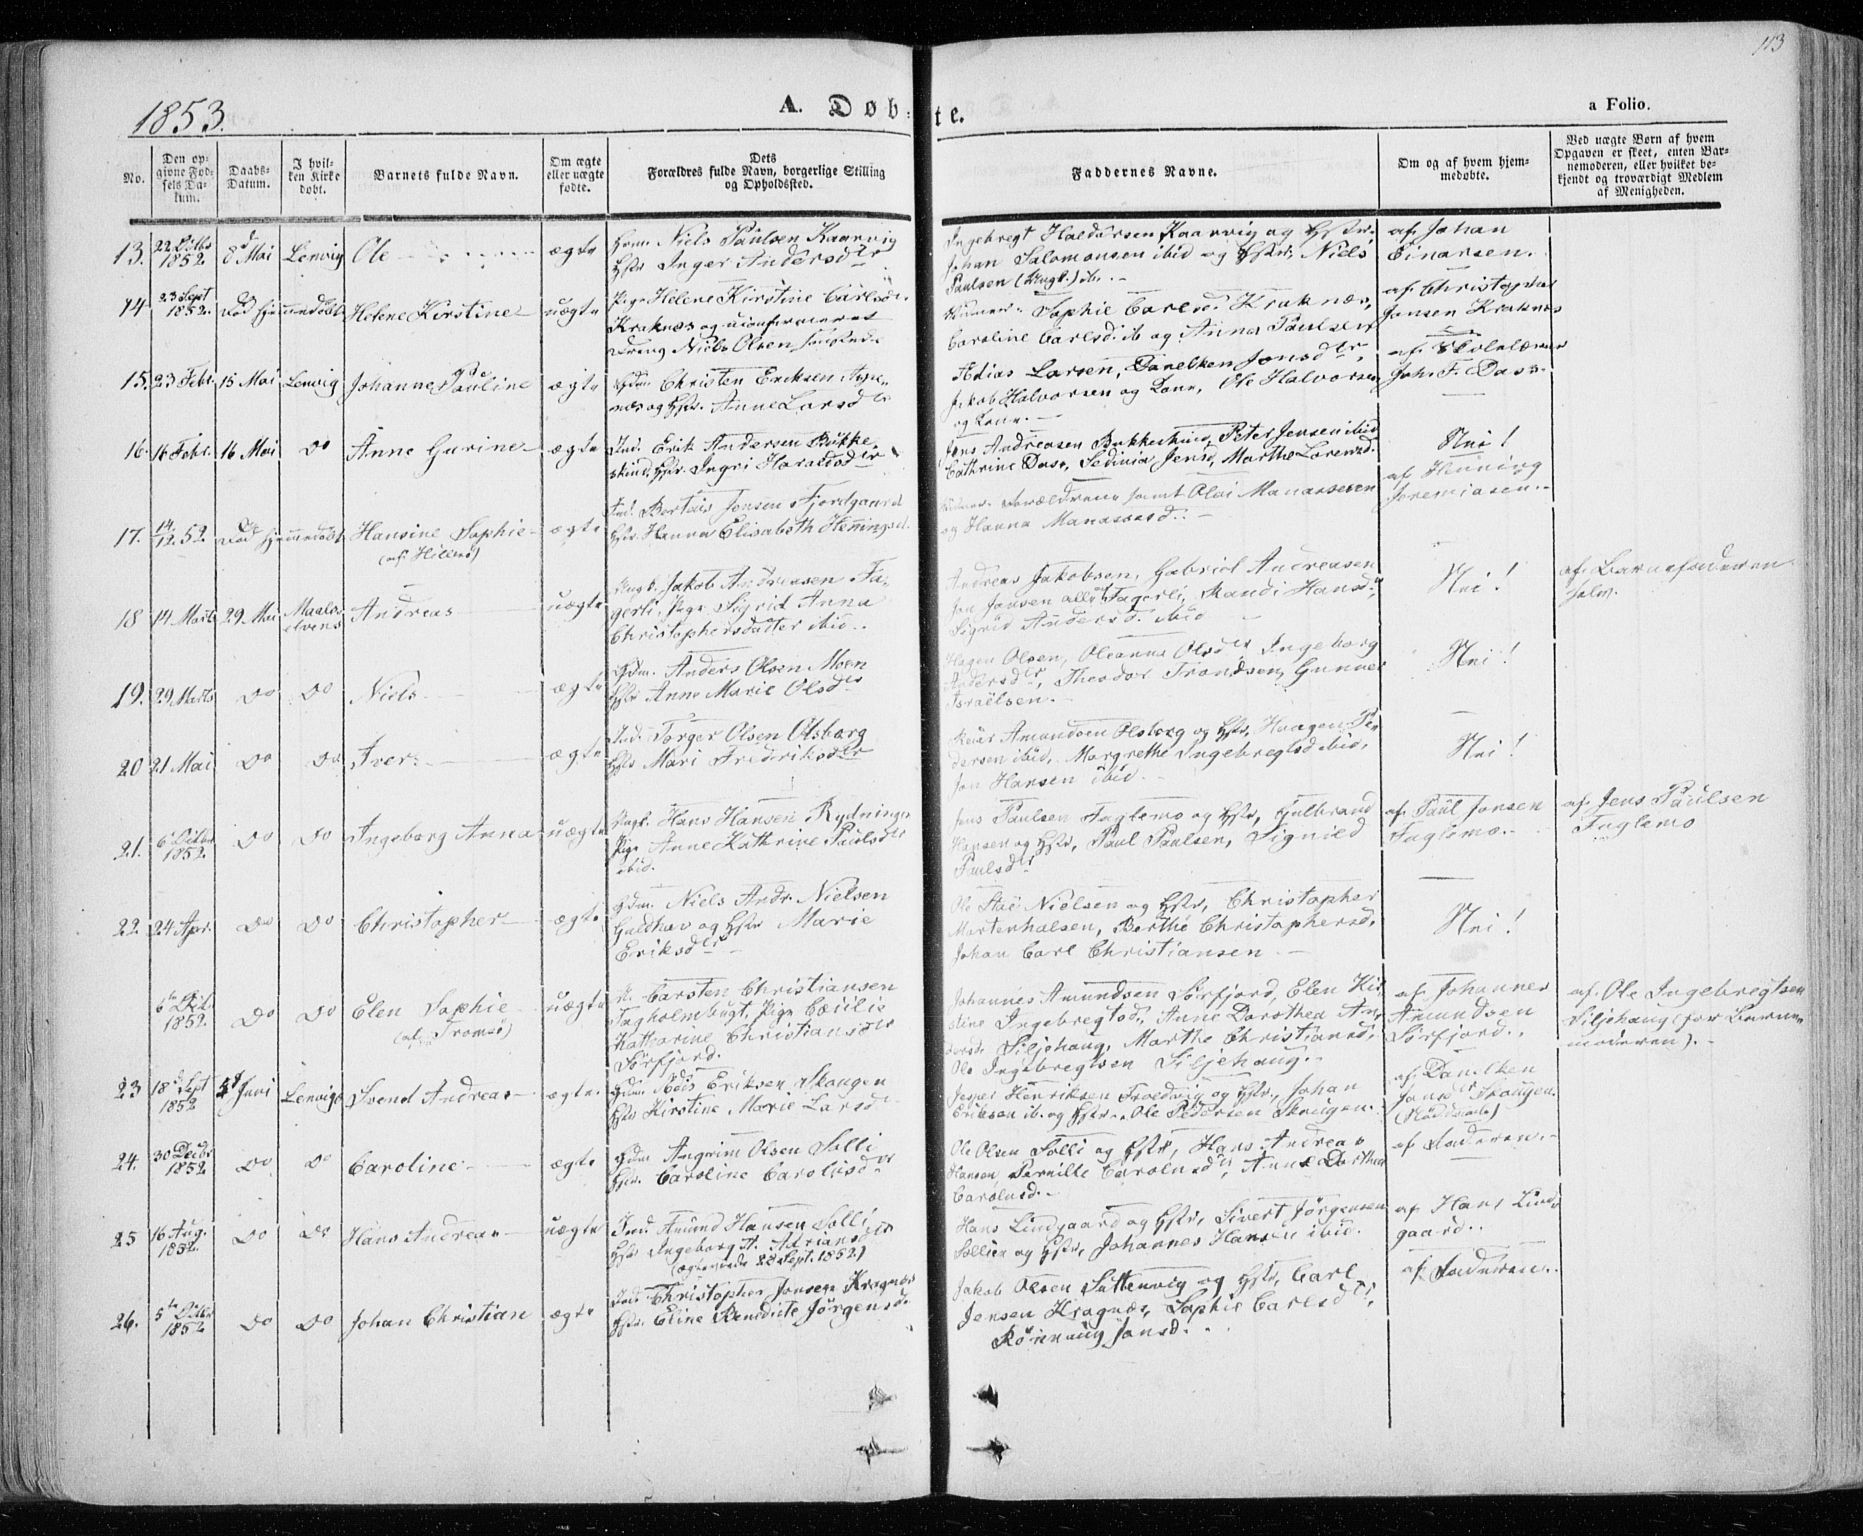 113
1853.
A. Døb-te.
a Folio.
No.
Den opgivne Fødsels Datum.
Daabs-Datum.
I hvilken Kirke døbt.
Barnets fulde Navn.
Om ægte eller uægte fødte.
Dets Forældres fulde Navn, borgerlige Stilling og Opholdssted.
Faddernes Navne.
Om og af hvem hjemmedøbte.
Ved uægte Børn af hvem Opgaven er skeet, enten Barnemoderen, eller hvilket bekjendt og troværdigt Medlem af Menigheden.
13. 22 Octbr 1852 8d Mai Lenvig Ole ægte
Niels Paulsen Kaarvig
Hstr Inger Andersdtr
Ingebregt Haldorsen Kaarvig og Hstr.
Johan Salomonsen ibid og Hstr, Niels
Paulsen (Ungk.) ib.
af Johan
Einarsen.
14. 23 Sept 1852. Død hjemmedøbt Helene Kirstine uægte
Pige Helene Kirstine Carlsd.
Kraknæs og uconfirmeret
Dreng Niels Olsen
Sophie Carlsd. Kraknæs,
Caroline Carlsd. ib og Anna Paulsen
af Christopher
Jensen Kraknæs
15. 23 Febr. 15 Mai Lenvig Johanne Pauline ægte
Gdm. Christen Eriksen
næs og Hstr. Anne Larsdtr
Larsen, Danelken Jonsdtr,
Jakob Halvorsen og Kone, Ole Halvorsen
og Kone.
af Skolelærer
Joh. F. Dass.
16. 16 Febr. 16 Mai Do Anne Gurine ægte
Ind. Erik Andersen Bukke
skind, Hstr. Ingri Haraldsdtr
Jens Andreasen Bukkeskind, Peter Jensen ibid
Cathrine Dass, Sedinia Jensd, Marthe Lorentsd.
Nei!
17. 14/12. 52. Død hjemmedøbt Hansine Sophie ægte
(af Hillesø)
Ind. Bertes Jensen Fjordgaard
Hstr. Hanna Elisabeth Hemingsd.
Forældrene samt Olai Manassesen
og Hanna Manassesd.
af Henning
Jeremiasen.
18 14 Marts 29 Mai Maalselvens Andreas uægte
Ungk. Jakob Andreasen Fa-
gerli, Pige Sigrid Anna
Christophersdatter ibid.
Andreas Jakobsen, Gabriel Andreasen
Jon Jonsen alle af Fagerli, Randi Hansd.,
Sigrid Andersd. ibid
Nei!
af Barnefaderen
selv.
19. 29 Marts Do Do Niels ægte
Gdm. Anders Olsen Moen
Hstr Anne Marie Olsdtr
Hagen Olsen, Oleanna Olsdtr, Ingeborg
Andersdtr, Theodor Trondsen, Gunner
Israelsen.
Nei!
20 21 Mai Do Do Iver ægte
Ind. Torger Olsen Olsborg
Hstr Mari Fredriksdtr
Amundsen Olsborg og Hstr, Haagen Pe-
dersen ibid, Margrethe Ingebregtsd ibid,
Jon Hansen ibid
Nei!
21. 6 Octbr 1852. Do Do Ingeborg Anna uægte
Ungk. Hans Hansen Rydningen
Pige Anne Kathrine Paulsdtr
ibid.
Jens Paulsen Fuglemo og Hstr, Gulbrand
Hansen og Hstr, Paul Paulsen, Signild
Paulsdtr
af Paul Jensen
Fuglemo.
af Jens Paulsen
Fuglemo
22. 24 Apr. Do Do Christopher ægte
Gdm. Niels Andr. Nielsen
Guldhav og Hstr Marie
Eriksdtr
Ole Nielsen og Hstr, Christopher
Mortenhalsen, Berthe Christophersd.
Johan Carl Christiansen
Nei!
1852. Do Do Elen Sophie uægte
(af Tromsø)
Carsten Christiansen
Fagholmbugt, Pige Cecilie
Katharine Christiansdtr
Sørfjord.
Johannes Amundsen Sørfjord, Elen Kir-
stine Ingebregtsd., Anne Dorothea An-
dersd. Siljehaug, Marthe Christiansd,
Ole Ingebregtsen Siljehaug.
af Johannes
Amundsen
Sørfjord.
af Ole Ingebregtsen
Siljehaug (for Barne-
moderen).
23 18d Sept 1852 5d Juni Lenvig Svend Andreas ægte
Gdm. Eriksen Skougen
Hstr Kirstine Marie Larsd
Jesper Henriksen og Hstr, Johan
Eriksen ib. og Hstr. Ole Pedersen Skougen.
af Danelken
Jonsdtr Skougen.
24. 30 Decbr 1852 Do Do Caroline ægte
Gdm Angrim Olsen Solli
Hstr. Caroline Carolusdtr
Ole Olsen Solli og Hstr, Hans Andreas
Hansen, Pernille Carolusdtr, Anne Dorthea
Carolusd.
af Faderen.
25 16 Aug. 1852. Do Do Hans Andreas uægte
Ind. Amund Hansen Solli
Hstr Ingeborg A. Adriansdtr
(ægteviede 22 Sept. 1852.)
Hans Lindgaard og Hstr, Sivert Jørgensen
Sollien og Hstr, Johannes Hansen ibid.
af Hans Lind-
gaard.
26. 5te Octbr 1852 Do Do Johan Christian ægte
Ind. Christopher Jensen Kragnæs
Hstr. Eline Bendicte Jørgensd.
Jakob Olsen Suttenvig og Hstr, Carl
Jensen Kragnæs, Sophie Carlsdtr,
Jonsd.
af Faderen.